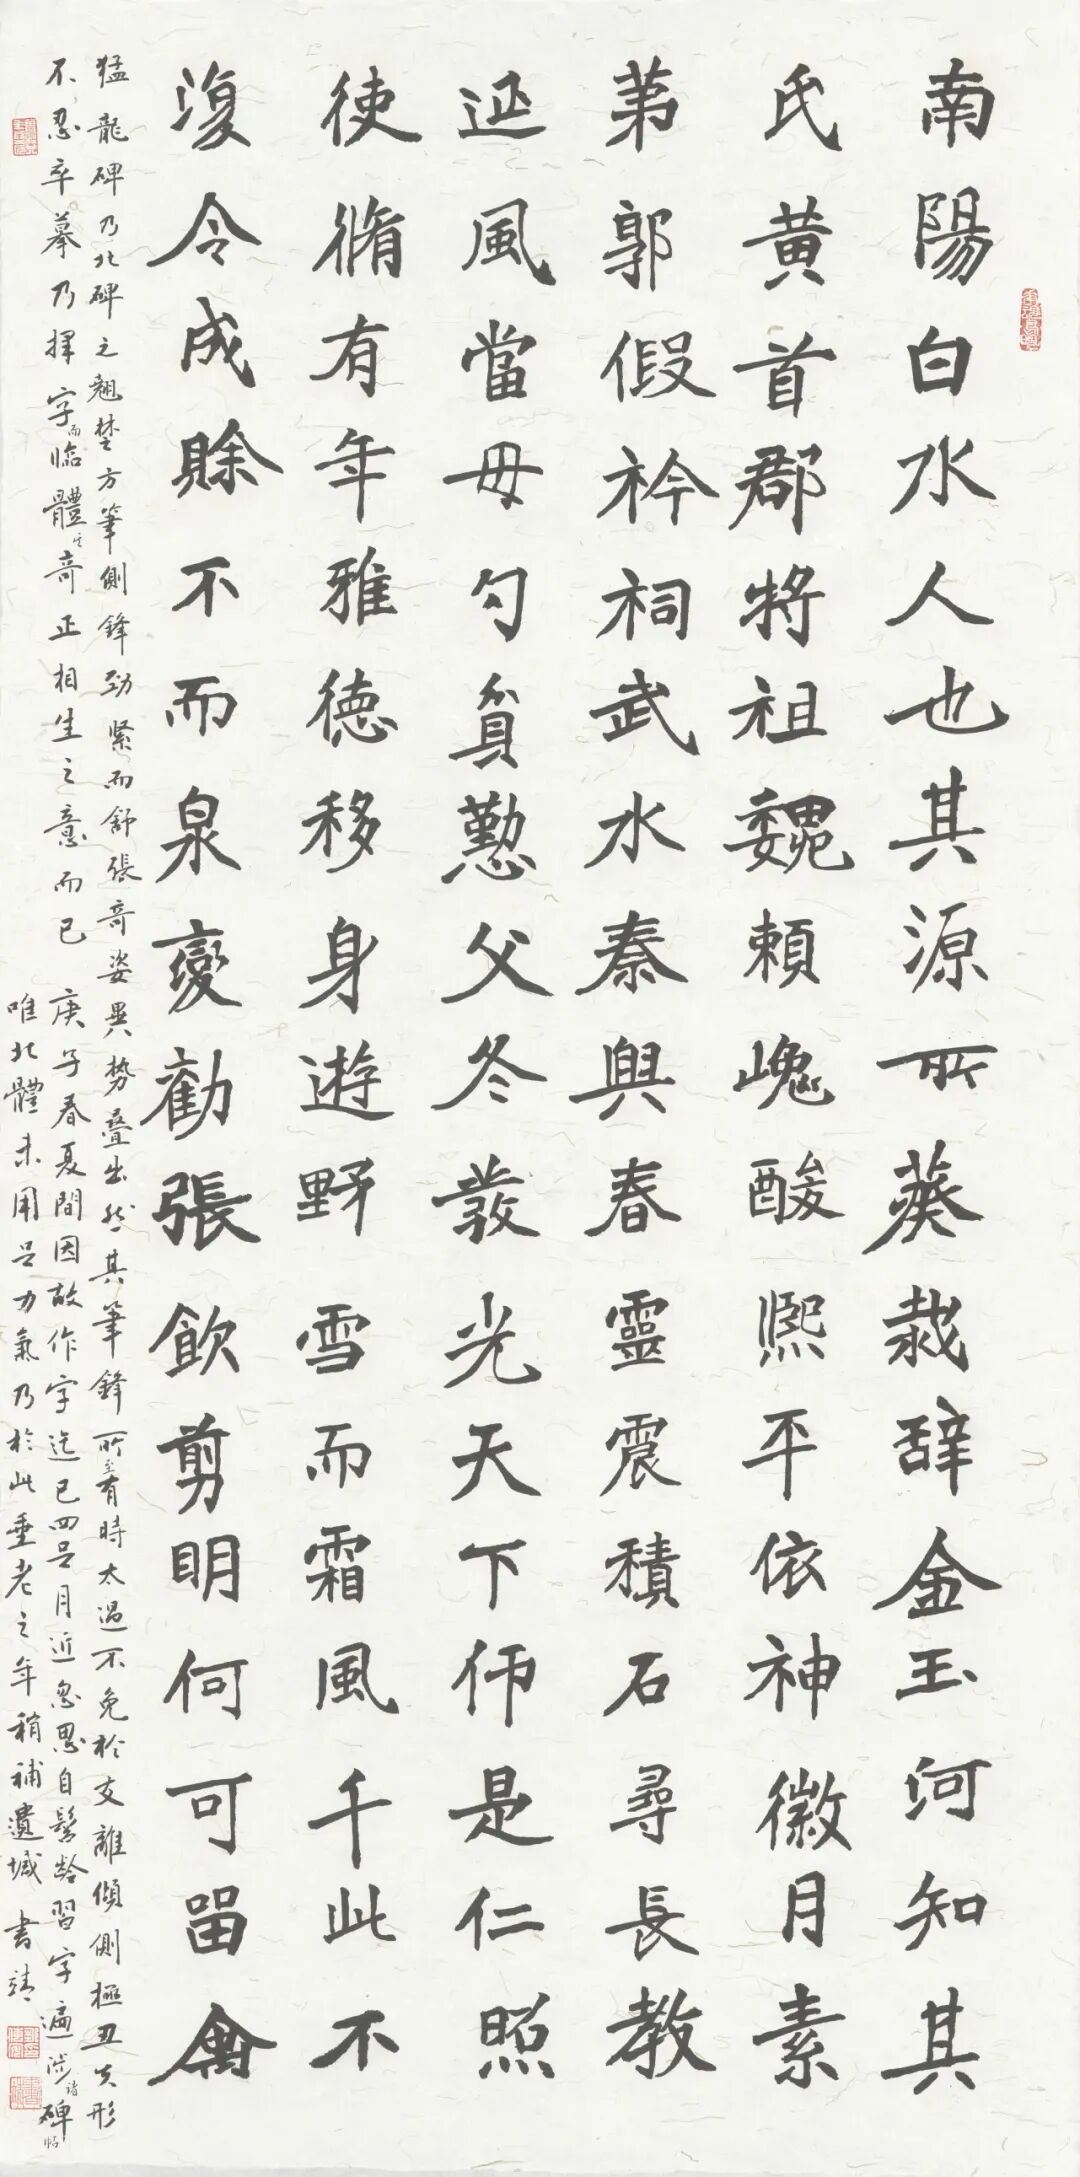 南陽白水人也其源所葵裁辞金玉河知其
氏黄首郡将祖魏頼巋酸熙平依神徽月素
苐郭假衿祠武水秦興春靈震積石尋長教
𨒂風當毋勺負懃父冬發光天下仰是仁照
使脩有年雅徳移身遊野雪而霜風千此不
復令成賖不而泉變勸張飲剪明何可留禽
猛龍碑乃北碑之翹楚方筆側鋒勁緊而舒張奇姿異勢疊出然其筆鋒所至有時太過不免於支離傾側極丑失形
不忍卒摹乃擇字而临體之奇正相生之意而已 庚子春夏間因故作字迄已四足月近忽思自髫齡習字遍涉諸碑帖
唯北體未用足力氣乃於此垂老之年稍補遺憾 書靖